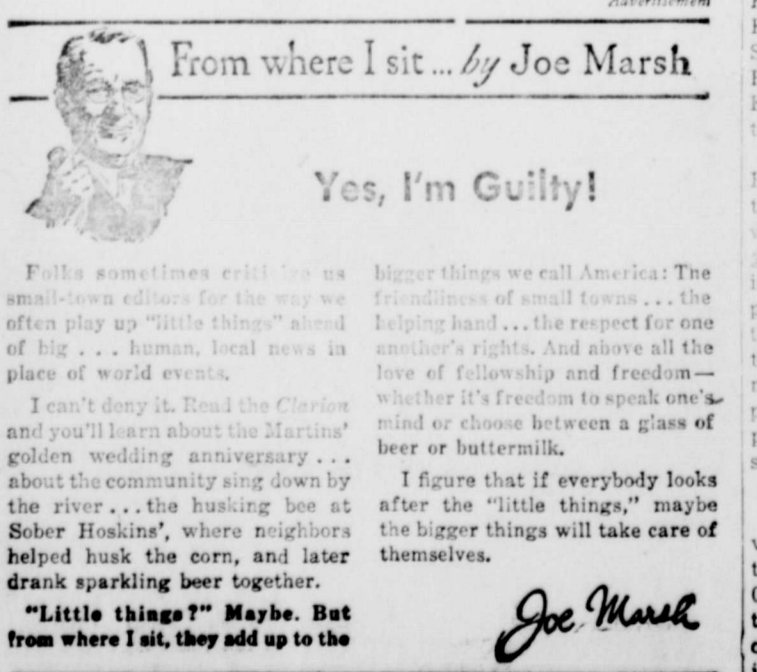 Advertisement
From where I sit ... by Joe Marsh
Yes, I'm Guilty!
Folks sometimes criticize us
small-town editors for the way we
often play up "little things" ahead
of big . . . human, local news in
place of world events.
I can't deny it. Read the Clarion
and you'll learn about the Martins'
golden wedding anniversary . . .
about the community sing down by
the river . . . the husking bee at
Sober Hoskins', where neighbors
helped husk the corn, and later
drank sparkling beer together.
"Little things?" Maybe. But
from where I sit, they add up to the
bigger things we call America: The
friendliness of small towns . . . the
helping hand . . . the respect for one
another's rights. And above all the
love of fellowship and freedom—
whether it's freedom to speak one's
mind or choose between a glass of
beer or buttermilk.
I figure that if everybody looks
after the "little things," maybe
the bigger things will take care of
themselves.
Joe Marsh